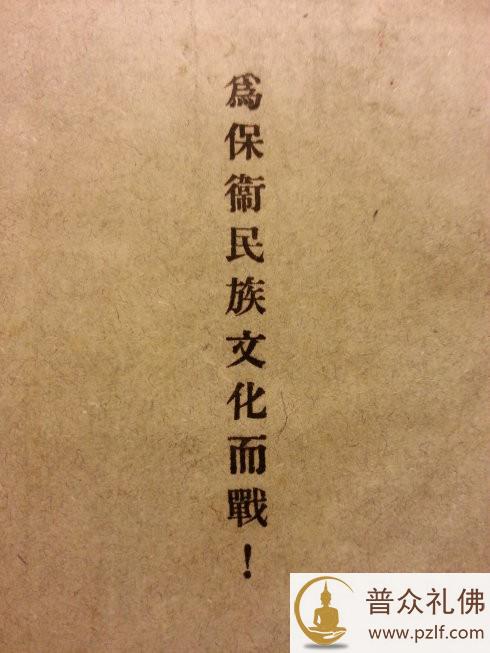 爲保衞民族文化而戰！
普众礼佛
www.pzlf.com